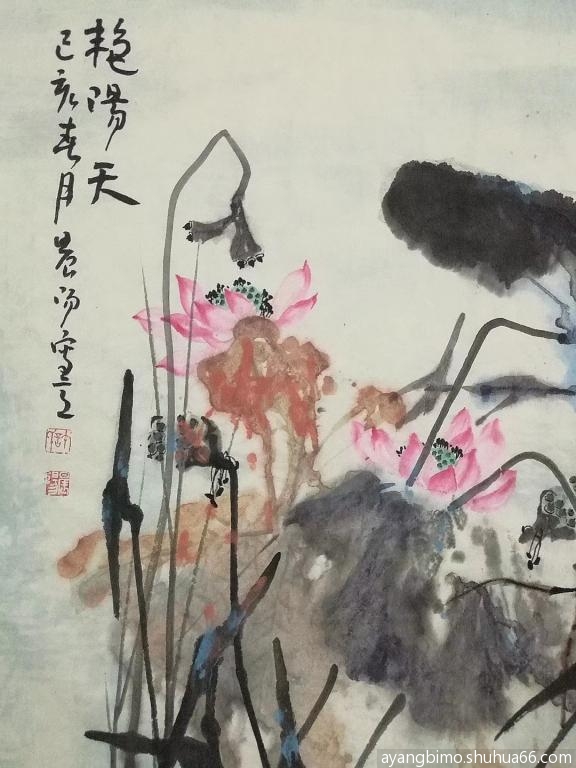 艳陽天
己亥春月晨
ayangbimo.shuhua66.com